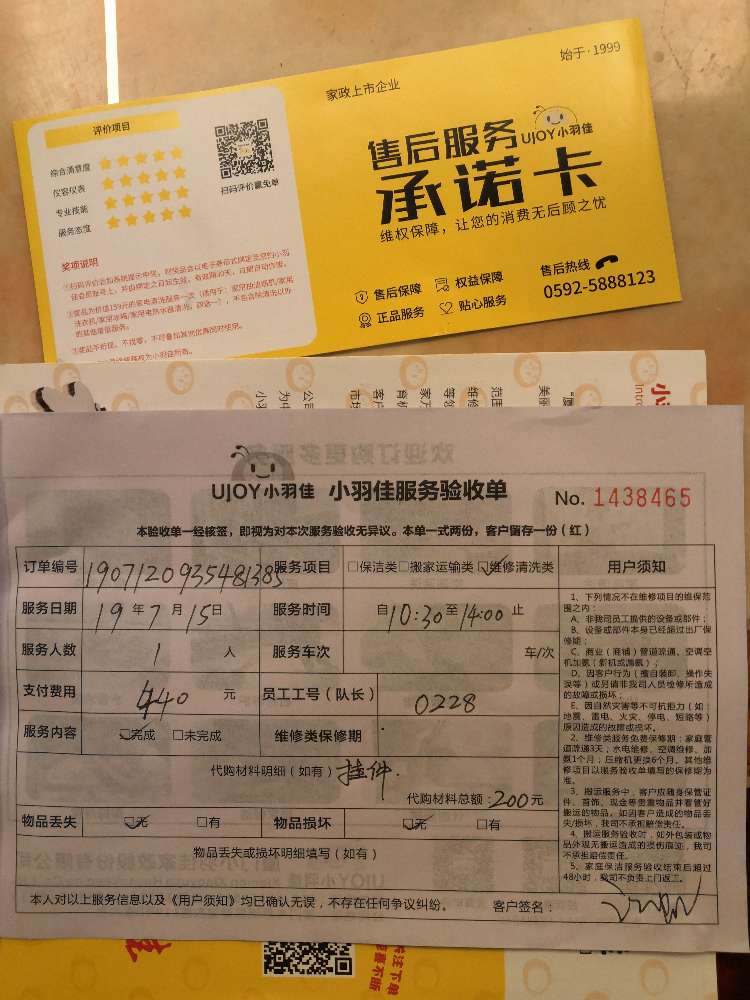 始于·1999
家政上市企业
售后服务
UJOY小羽佳
承诺卡
维权保障，让您的消费无后顾之忧
售后保障
权益保障
正品服务
贴心服务
售后热线
0592-5888123
评价项目
综合满意度
仪容仪表
专业技能
服务态度
扫码评价赢免单
奖项说明
UJOY小羽佳 小羽佳服务验收单
No. 1438465
本验收单一经核签，即视为对本次服务验收无异议。本单一式两份，客户留存一份（红）
订单编号 1907120935481385 服务项目 □保洁类□搬家运输类☑维修清洗类
服务日期 19年7月15日 服务时间 自10:30至14:00止
服务人数 1 人 服务车次 车/次
支付费用 440 元 员工工号（队长） 0228
服务内容 ☑完成 □未完成 维修类保修期
代购材料明细（如有）挂件.
代购材料总额：200元
物品丢失 ☑无 □有 物品损坏 ☑无 □有
物品丢失或损坏明细填写（如有）
本人对以上服务信息以及《用户须知》均已确认无误，不存在任何争议纠纷。 客户签名：
用户须知
1、下列情况不在维修项目的维保范
围之内：
A、非我司员工提供的设备或部件；
B、设备或部件本身已经超过出厂保
修期；
C、商业（商铺）管道疏通、空调空
机加氟（新机或漏氟）；
D、因客户行为（擅自装卸、操作失
误等）或另请非我司人员检修所造成
的故障或损坏；
E、因自然灾害等不可抗力（如：
地震、雷电、火灾、停电、短路等）
原因造成的故障或损坏。
2、维修类服务免费保修期：家庭管
道疏通3天；水电维修、空调维修、加
氟1个月；压缩机更换6个月。其他维
修项目以服务验收单填写的保修期为
准。
3、搬运服务中，客户应随身保管证
件、首饰、现金等贵重物品并看管好
搬运的物品。如因客户造成的物品丢
失/损坏，我司不承担赔偿责任。
4、搬运服务验收时，如外包装或物
品外观无搬运造成的损伤痕迹，我司
不承担赔偿责任。
5、家庭保洁服务验收结束后超过
48小时，我司不负责上门返工。